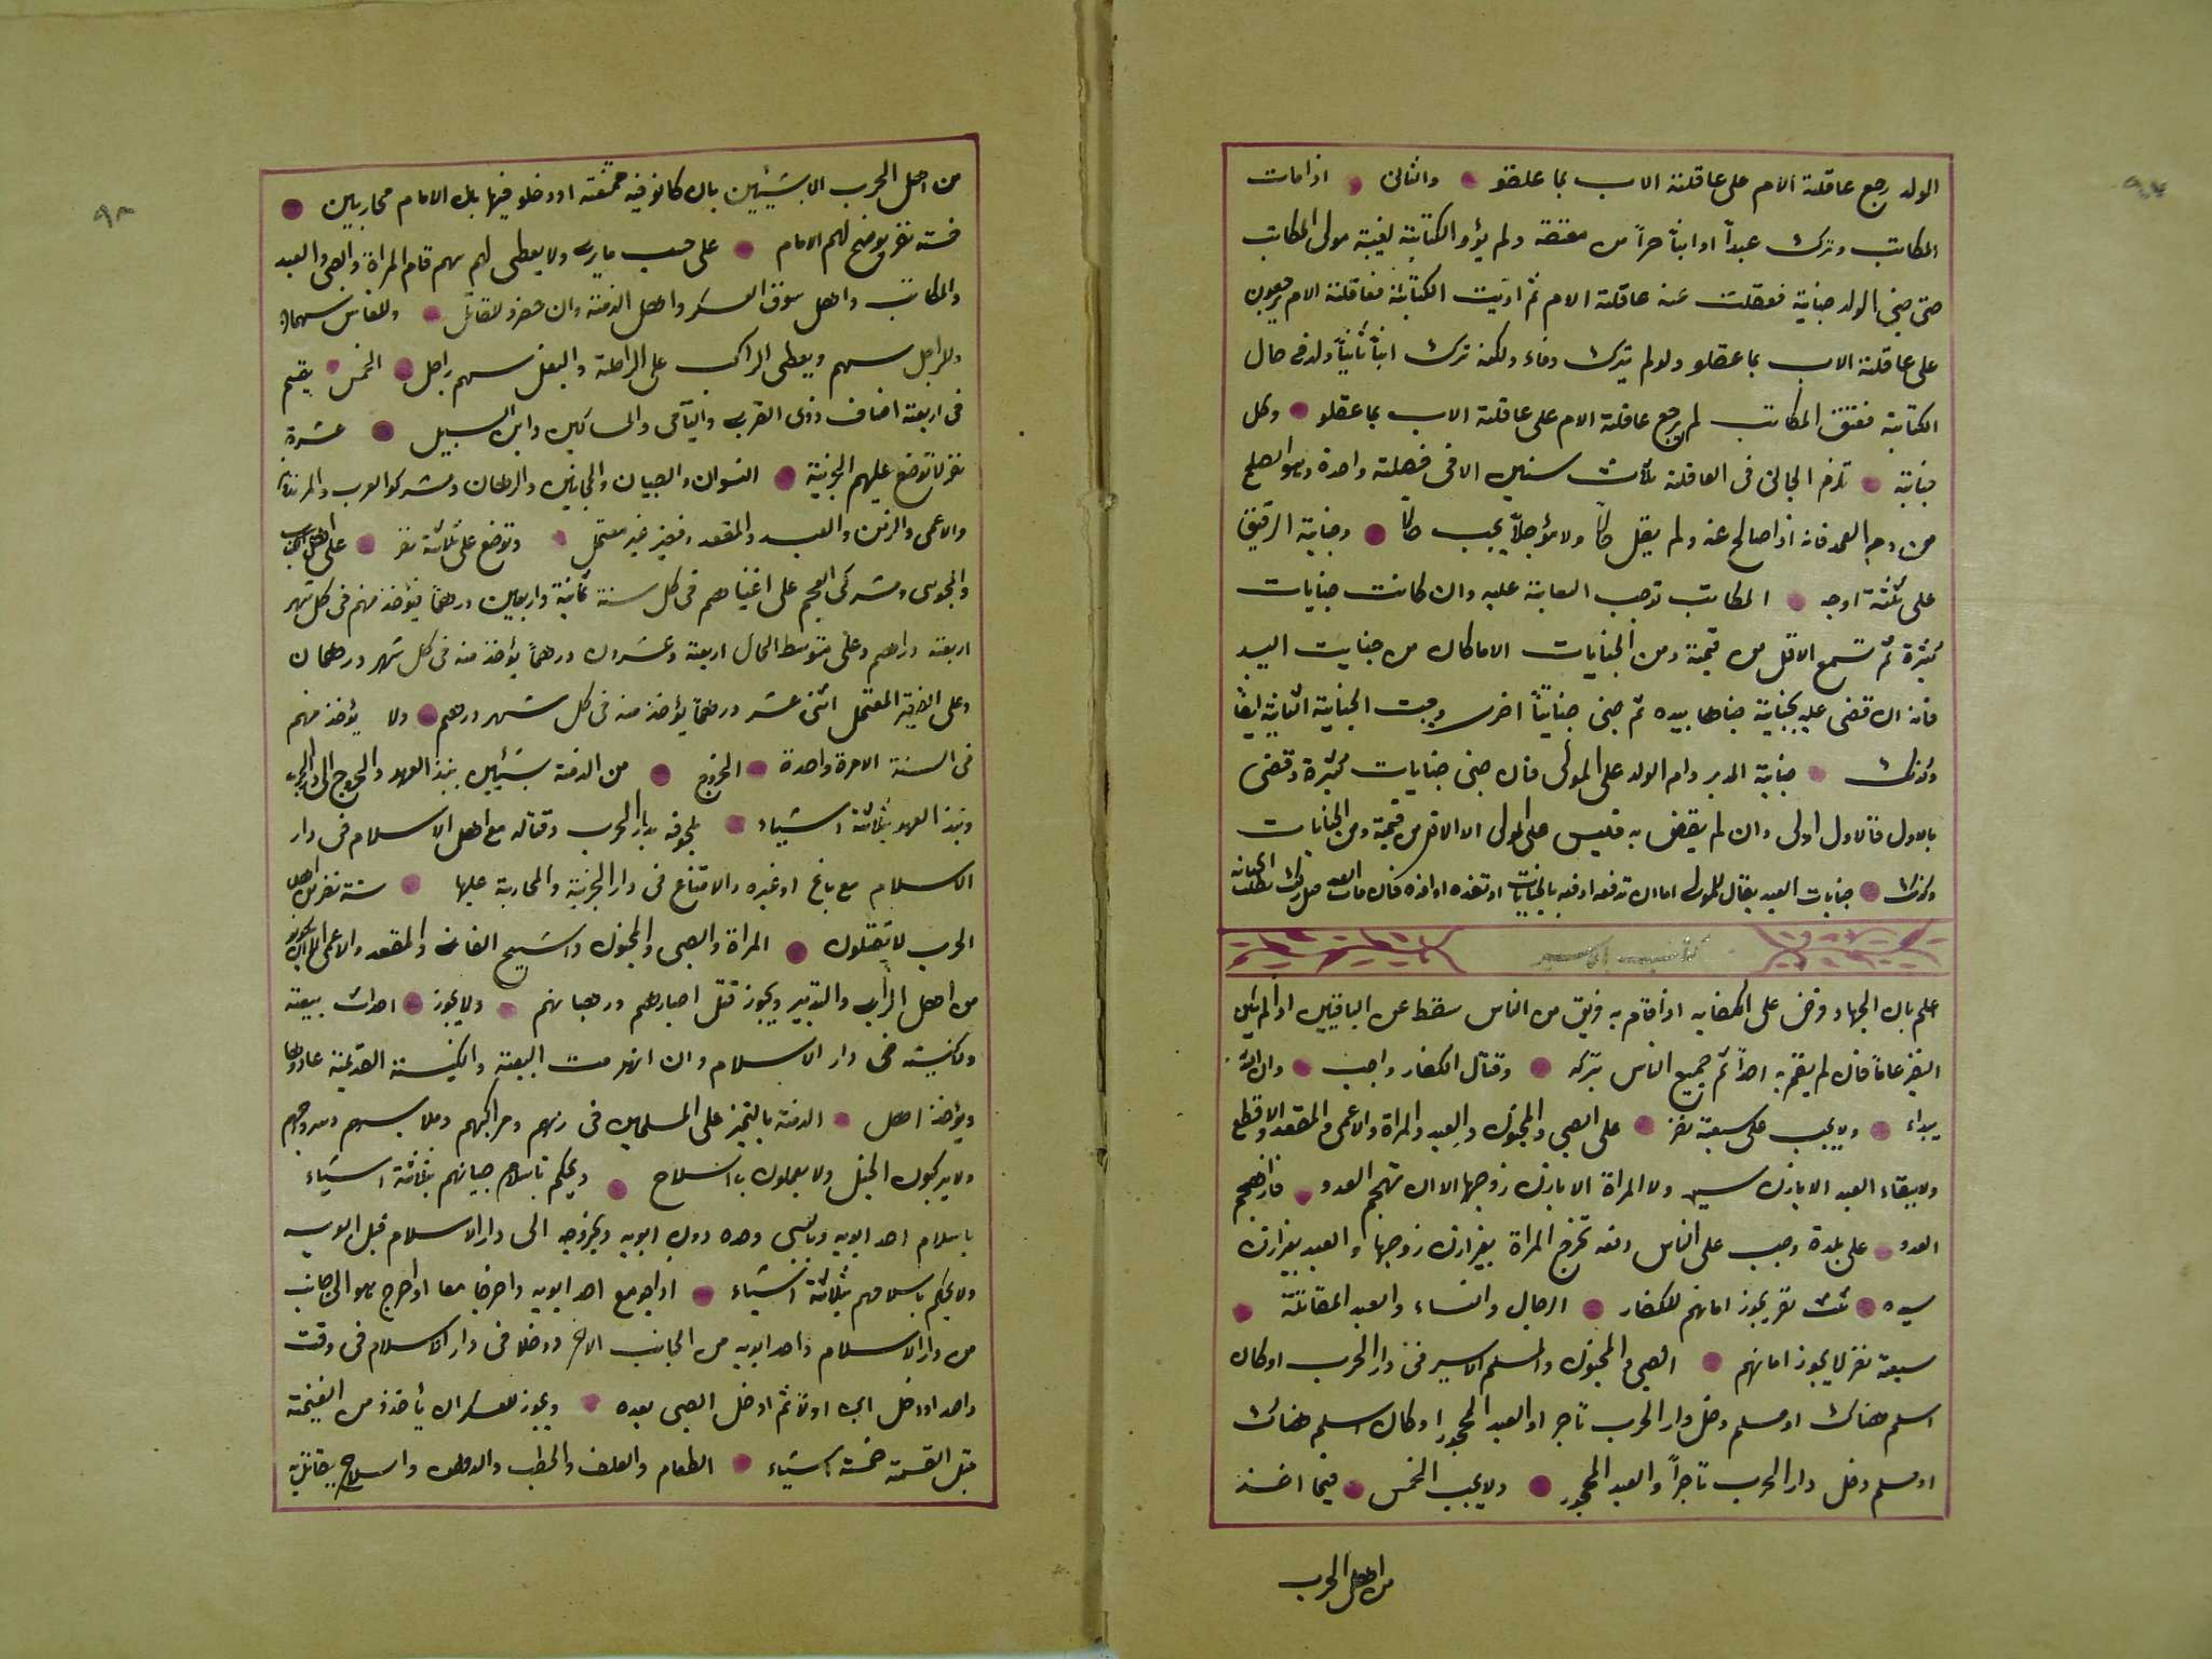 الولد رجع عاقلة الام على عاقلة الاب بما عقلو والثانى اذا مات
المكاتب وترك عبداً او ابناً حراً من معتقة ولم يؤد الكتابة لغيبة مولى المكاتب
حتى جنى الولد جناية فعقلت عنه عاقلة الام ثم اديت الكتابة فعاقلة الام يرجعون
على عاقلة الاب بما عقلو ولو لم يترك وفاء ولكنه ترك ابناً ثانياً ولد فى حال
الكتابة فعتق المكاتب لم يرجع عاقلة الام على عاقلة الاب بما عقلو وكل
جناية تلزم الجانى فى العاقلة ثلث سنين الا فى فصلة واحدة وهو الصلح
من دم العمد فانه اذا صالح عنه ولم يقل حالاً ولا مؤجلاً يجب حالاً وجناية الرقيق
على ثلثة اوجه المكاتب توجب السعاية عليه وان كانت جنايات
كثيرة ثم تسمع الاقل من قيمة ومن الجنايات الا ما كان من جنايت اليد
فانه ان قضى عليه بجناية جناها بيده ثم جنى جنايتاً اخرى وجبت الجناية الثانية ايضاً
وكذلك جناية المدبر وام الولد على المولى فان جنى جنايات كثيرة وقضى
بالاول فالاول اولى وان لم يقض به فليس على المولى الا الاقل من قيمة ومن الجنايات
وكذلك جنايات العبد يقال للمولى اما ان تدفعه بالجنايات او تفده فان مات العبد
كتاب السير
اعلم بان الجهاد فرض على الكفاية اذا قام به فريق من الناس سقط عن الباقيين اذا لم يكن
النفير عاماً فان لم يقم به احداً ثم جميع الناس بتركه وقتال الكفار واجب وان لم
يبداء ولا يجب على سبعة نفر على الصبى والمجنون والعبد والمراة والاعمى والمقعد والاقطع
ولا يقاء العبد الا باذن سيد ولا المراة الا باذن زوجها الا ان تهجم العدو فان هجم
العدو على بلدة وجب على الناس دفعه تخرج المراة بغير اذن زوجها والعبد بغير اذن
سيده ثلث نفر يجوز امانهم للكفار الرجال والنساء والعبد المقاتلة
سبعة نفر لا يجوز امانهم الصبى والمجنون والمسلم الاسير فى دار الحرب او كان
اسلم هناك او مسلم دخل دار الحرب تاجر او العبد المحجورا وكان اسلم هناك
او مسلم دخل دار الحرب تاجراً والعبد المحجور ولا يجب الخمس فيما اخذ
من اهل الحرب
٩٨
من اهل الحرب الا بشيئين بان كانو فيه ممنعة او دخلو فيها باذن الامام محاربين
فستة نفر يوضح لهم الامام على حسب ما يرى ولا يعطى لهم سهم تام المراة والصبى والعبد
والمكاتب واهل سوق العسكر واهل الذمة وان حضرو للقتال وللفارس سهمان
وللراجل سهم ويعطى الراكب على الراحلة والبغل سهم راجل الخمس يقسم
فى اربعة اصناف ذوى القربى واليتامى والمساكين وابن السبيل عشرة
نفر لا توضع عليهم الجزية النسوان والصبيان والمجانين والرهبان ومشركوا العرب والمرتدين
والاعمى والزمن والعبد والمقعد وفقير غير معتمل وتوضع على ثلاثة نفر على اهل الكتاب
والمجوسى ومشركى العجم على اغنياهم فى كل سنة ثمانية واربعين درهماً يؤخذ منهم فى كل شهر
اربعة دراهم وعلى متوسط الحال اربعة وعشرون درهماً يؤخذ منه فى كل شهر درهمان
وعلى الفقير المعتمل اثنى عشر درهماً يؤخذ منه فى كل شهر درهم ولا يؤخذ منهم
فى السنة الا مرة واحدة الخروج من الذمة بشيئين بنبذ العهد والخروج الى دار الحرب
ونبذ العهد بثلاثة اشياء لحوقه بدار الحرب وقتاله مع اهل الاسلام فى دار
الاسلام مع باغ او غيره والامتناع فى دار الجزية والمحاربة عليها ستة نفر من اهل
الحرب لا يقتلون المراة والصبى والمجنون والشيخ الفانى والمقعد والاعمى الا ان يكونو
من اهل الراى والتدبير ويجوز قتل احبارهم ورهبانهم ولا يجوز احداث بيعة
وكنيسة فى دار الاسلام وان انهدمت البيعة والكنيسة القديمة عادوها
ويؤخذ اهل الذمة بالتميز على المسلمين فى زيهم ومراكبهم وملابسهم وسروجهم
ولا يركبون الخيل ولا يعملون بالسلاح ويحكم باسلام صبيانهم بثلاثة اشياء
باسلام احد ابويه وبالسبى وحده دون ابويه وبخروجه الى دار الاسلام قبل ابويه
ولا يحكم باسلامهم بثلاثة اشياء اذا هو مع احد ابويه واخرجا معا او اخرج هو الى جانب
من دار الاسلام واحد ابويه من الجانب الاخر ودخلا فى دار الاسلام فى وقت
واحد او دخل ابى اولاً ثم ادخل الصبى بعده ويجوز للعسكر ان يأخذو من الغنيمة
قبل القسمة خمسة اشياء الطعام والعلف والحطب والدهن والسلاح يقاتل به